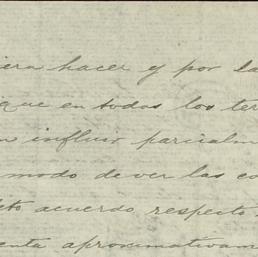 iera hacer y por la
que en todos los ter
n influir parcialm
modo de ver las co
eto acuerdo respecto
enta aproximativam